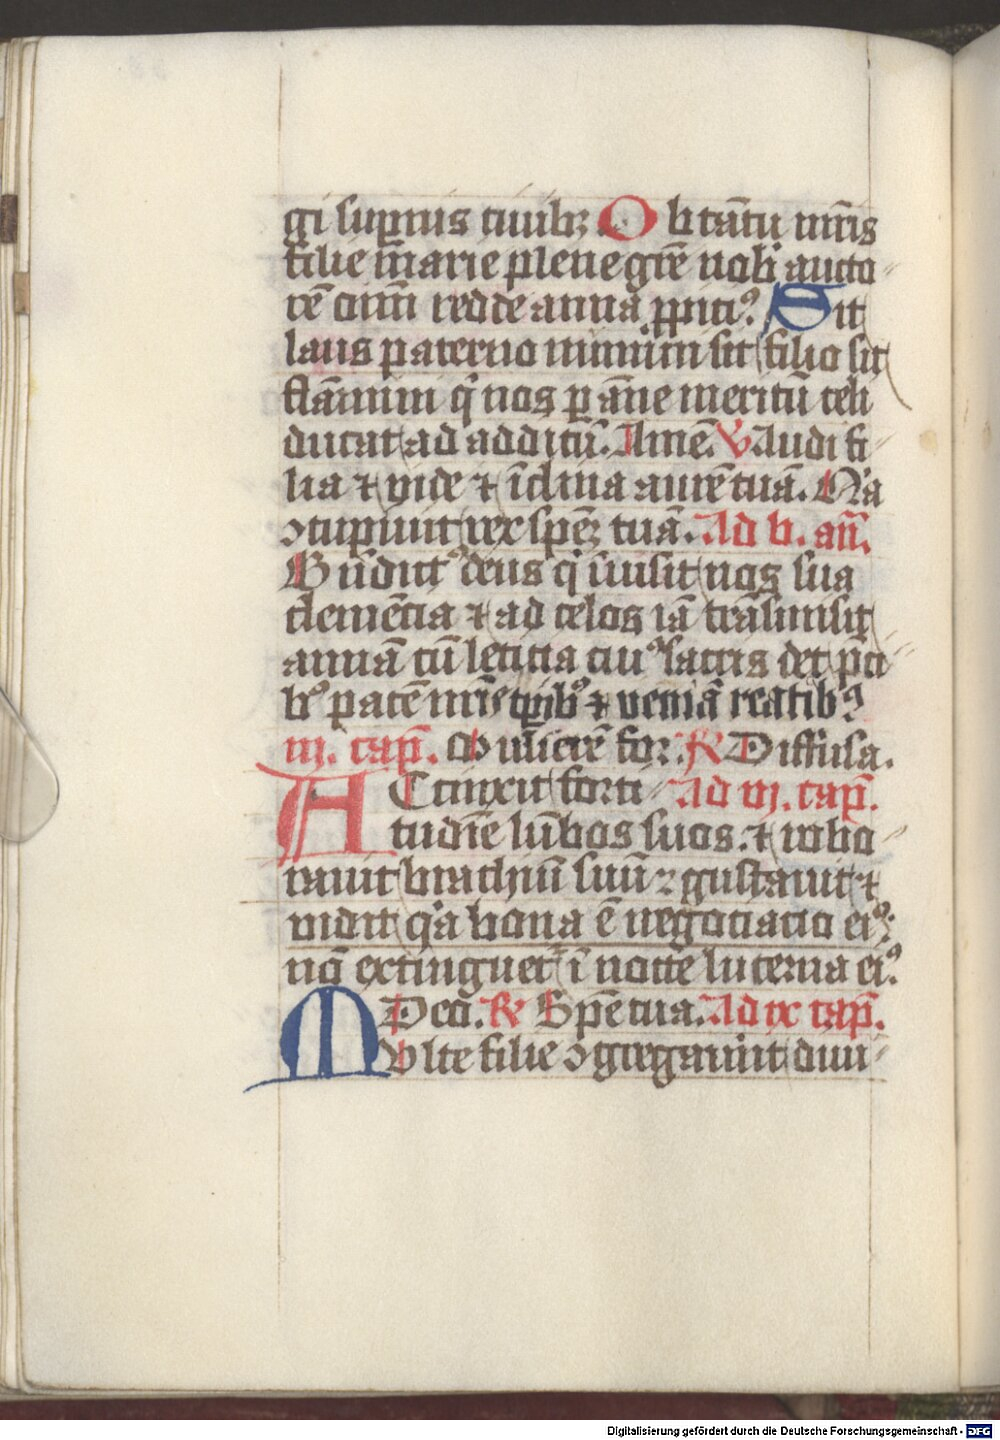 gi supnis ciuibꝫ. Ob tātu mr̄is
filie marie plene gr̄e nob aucto
rē om̄i redde anna ꝓpiciꝰ. Sit
laus paterno numini sit filio sit
flāmini q̇ nos p āne meritū celi
ducat ad additū. Amē. V Audi fi
lia ⁊ vide ⁊ īclina aurē tuā. Q'a
ↄcupiuit rex spēꝫ tuā. Ad b. an̄.
Bn̄dict' deus q̇ uisit nos sua
clemēcia ⁊ ad celos iā trāsmisit
annā cū leticia ciuꝰ sacris det p̄ci
bꝰ pacē nr̄is tp̄ibꝰ ⁊ veniā reatibꝰ
in. cap̄. Mulierē for. R Diffusa.
Accinxit forti Ad vj. cap̄.
tudīe lūbos suos. ⁊ robo
rauit brachiū suū ⁊ gustauit ⁊
vidit q'a bona ē negociacio eiꝰ.
nō extinguet' ī nocte lucerna eiꝰ.
Deo. R Spē tua. Ad ix cap̄.
Multe filie ↄgregauīt diui
Digitalisierung gefördert durch die Deutsche Forschungsgemeinschaft - DFG